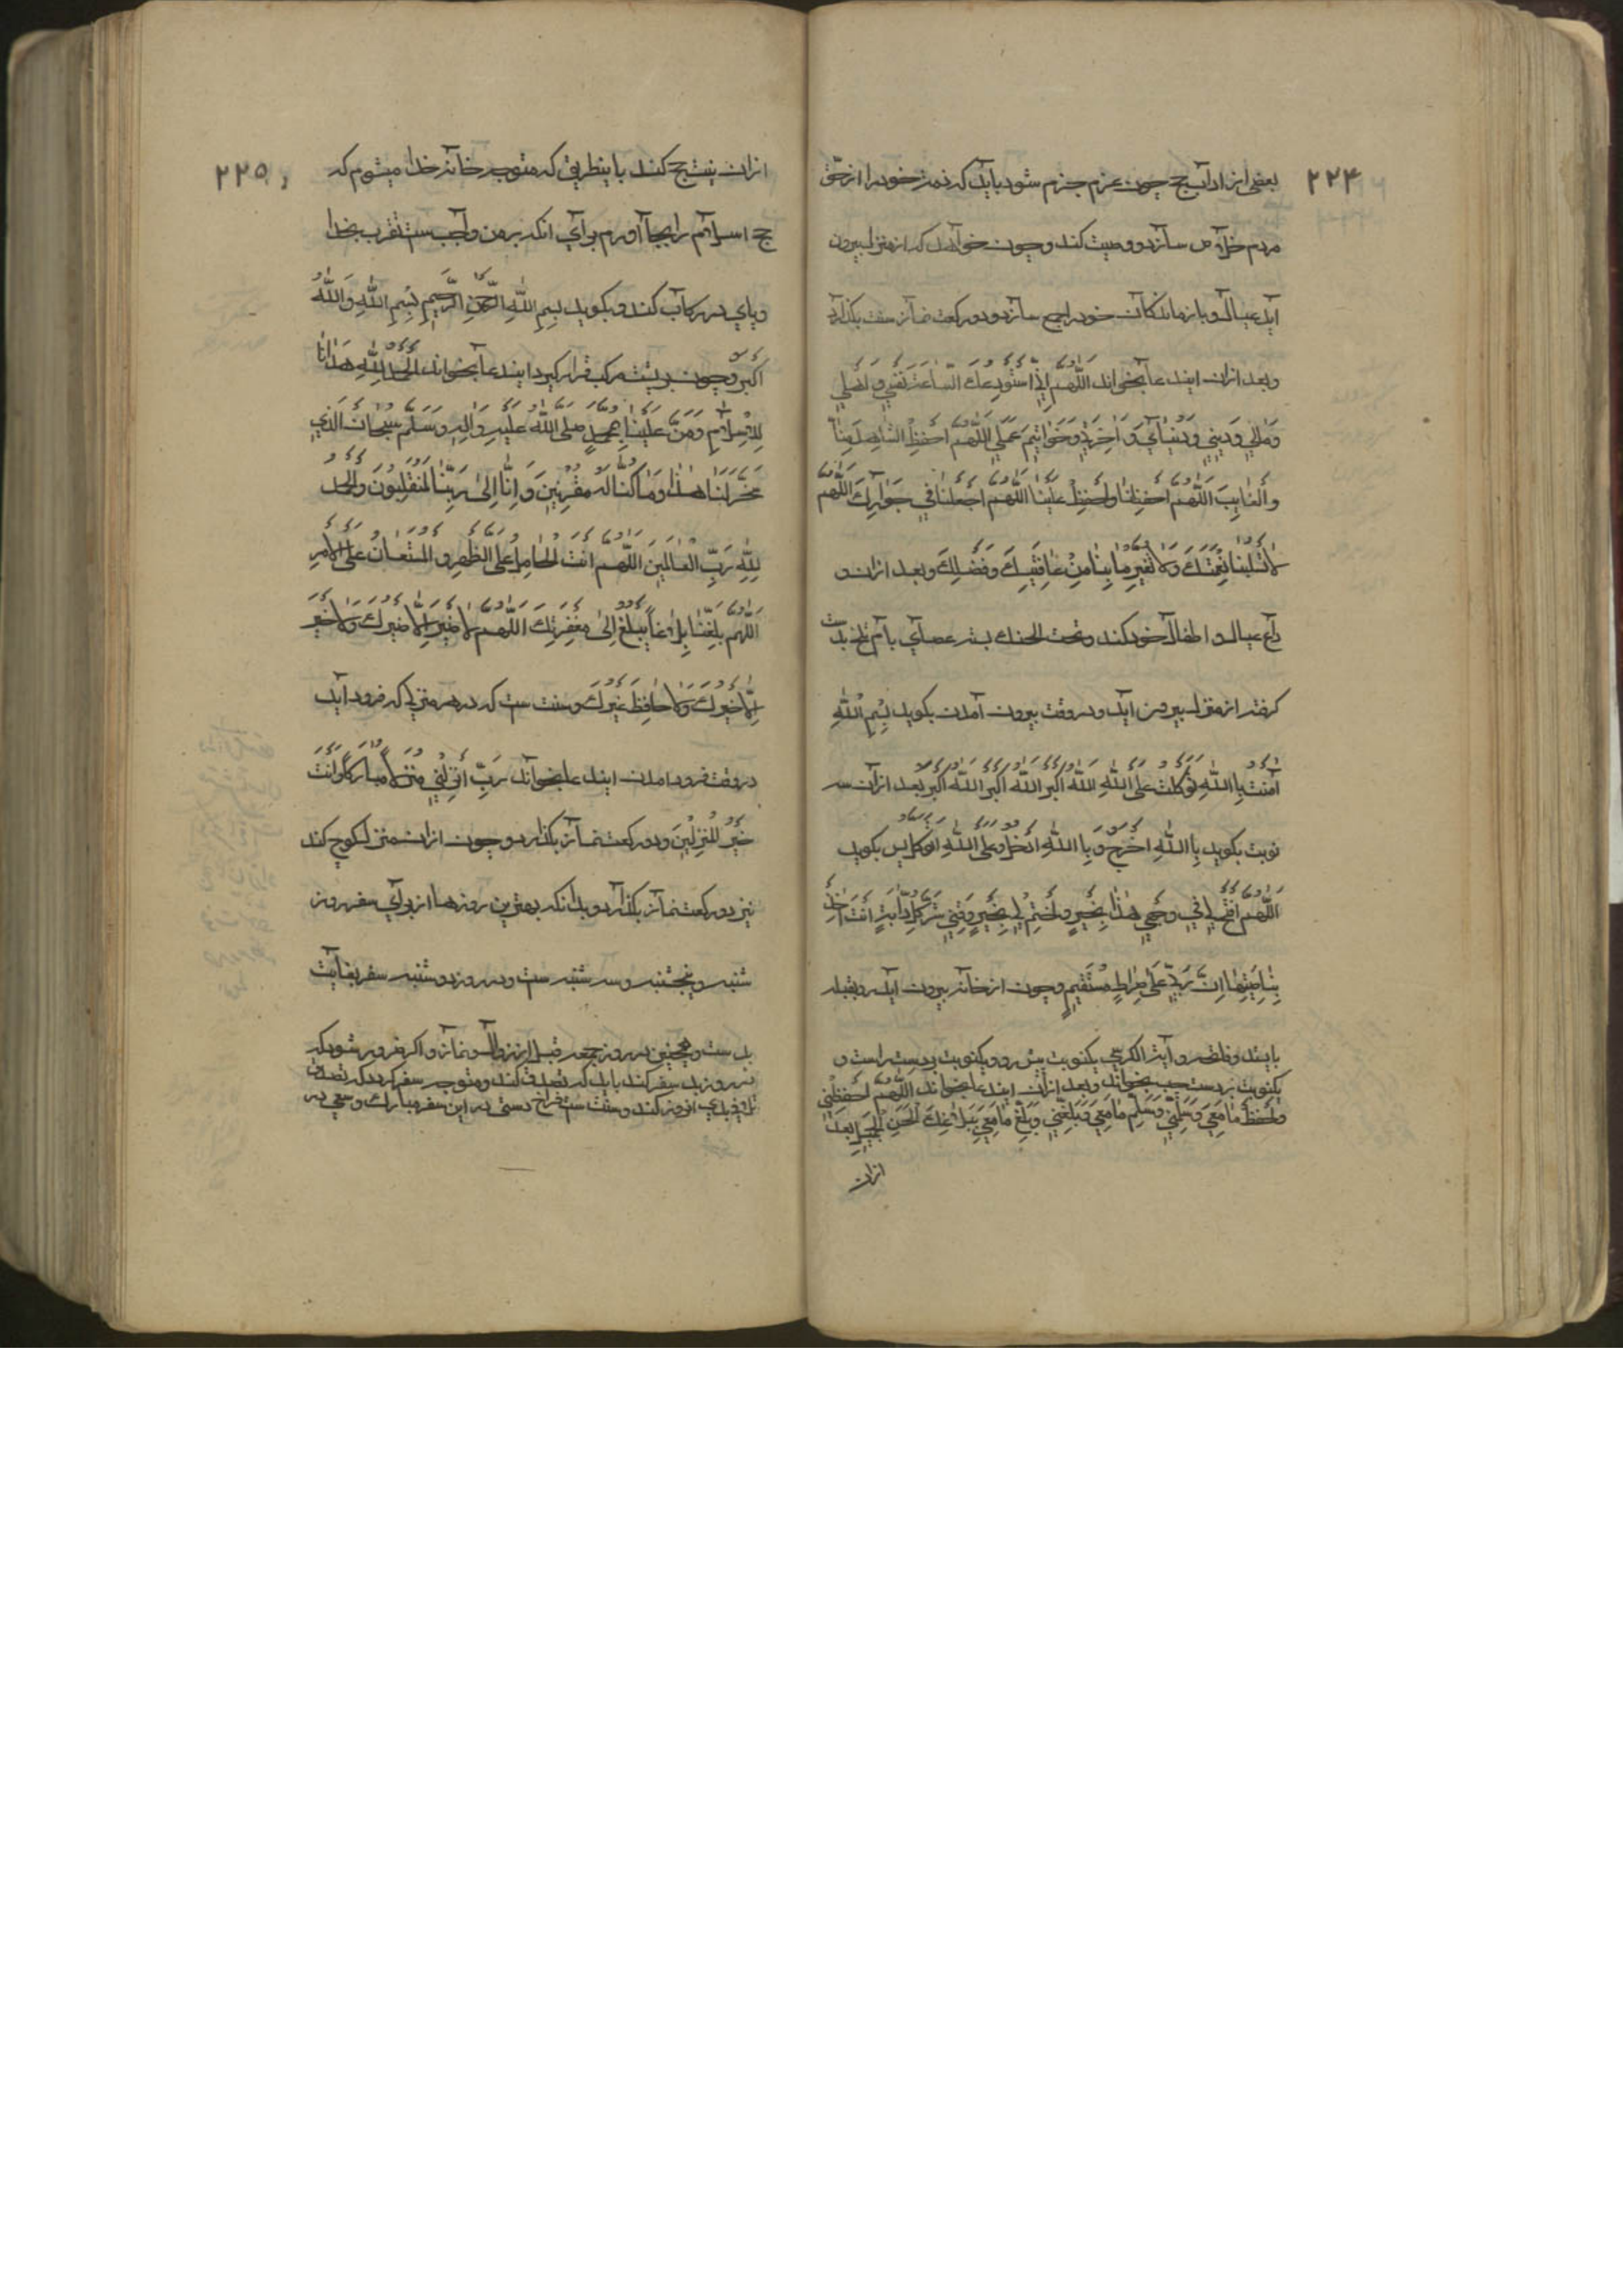 ۲۲۴
بعضی از اداب حج چون عزم جزم شود باید که ذمه خود را از حق
مردم خلاص سازد و وصیت کند و چون خواهد که از منزل بیرون
آید عیال و بازماندکان خود را جمع سازد و دو رکعت نماز سنت بکذارد
و بعد ازان ایندعا بخواند اَللّٰهُمَّ اِنِّی اَسْتَوْدِعُكَ السَّاعَةَ نَفْسِي وَ اَهْلِي
وَ مَالِي وَ دِينِي وَ دُنْيَايَ وَ اٰخِرَتِي وَ خَوَاتِيمَ عَمَلِي اَللّٰهُمَّ احْفَظِ الشَّاهِدَ مِنَّا
وَ الْغَايِبَ اَللّٰهُمَّ احْفَظْنَا وَ احْفَظْ عَلَيْنَا اَللّٰهُمَّ اجْعَلْنَا فِي جَوَارِكَ اَللّٰهُمَّ
لَا تَسْلُبْنَا نِعْمَتَكَ وَ لَا تُغَيِّرْ مَا بِنَا مِنْ عَافِيَتِكَ وَ فَضْلِكَ و بعد ازان و
داع عیال و اطفال خود کند و تحت الحنك بسته عصای بادام تلخ بدست
کرفته از منزل بیرون آید و در وقت بیرون آمدن بکوید بِسْمِ اللّٰهِ
اٰمَنْتُ بِااللّٰهِ تَوَكَّلْتُ عَلَى اللّٰهِ اَللّٰهُ اَكْبَرُ اَللّٰهُ اَكْبَرُ اَللّٰهُ اَكْبَرُ بعد ازان سه
نوبت بکوید بِااللّٰهِ اَخْرُجُ وَ بِا اللّٰهِ اَدْخُلُ وَ عَلَى اللّٰهِ اَتَوَكَّلُ پس بکوید
اَللّٰهُمَّ افْتَحْ لِي فِي وَجْهِي هٰذَا بِخَيْرٍ وَ اخْتِمْ لِي بِخَيْرٍ وَ قِنِي شَرَّ كُلِّ دَابَّةٍ اَنْتَ اٰخِذٌ
بِنَاصِيَتِهَا اِنَّ رَبِّي عَلَى صِرَاطٍ مُسْتَقِيمٍ و چون از خانه بیرون آید رو بقبله
بایستد و فاتحه و آیة الکرسی یکنوبت پیش رو و یکنوبت بردست راست و
یکنوبت بردست چپ بخواند و بعد ازان ایندعا بخواند اَللّٰهُمَّ احْفَظْنِي
وَ احْفَظْ مَا مَعِي وَ سَلِّمْنِي وَ سَلِّمْ مَا مَعِي وَ بَلِّغْنِي وَ بَلِّغْ مَا مَعِي بِبَلَاغِكَ الْحَسَنِ الْجَمِيلِ بعد
ازان
۲۲۵
ازان نیت حج کند باینطریق که متوجه خانه خدا میشوم که
حج اسلام را بجا آورم برای انکه بر من واجب ست تقرب بخدا
و پای در رکاب کند و بکوید بِسْمِ اللّٰهِ الرَّحْمٰنِ الرَّحِيمِ بِسْمِ اللّٰهِ وَ اللّٰهُ
اَكْبَرُ و چون بر پشت مرکب قرار کیرد ایندعا بخواند اَلْحَمْدُ لِلّٰهِ هَدَانَا
لِلْاِسْلَامِ وَ مَنَّ عَلَيْنَا بِمُحَمَّدٍ صلی اللّٰه علیه و اٰله و سلم سُبْحَانَ الَّذِي
سَخَّرَ لَنَا هٰذَا وَ مَا كُنَّا لَهُ مُقْرِنِينَ وَ اِنَّا اِلٰى رَبِّنَا لَمُنْقَلِبُونَ وَ الْحَمْدُ
لِلّٰهِ رَبِّ الْعَالَمِينَ اَللّٰهُمَّ اَنْتَ الْحَامِلُ عَلَى الظَّهْرِ وَ الْمُسْتَعَانُ عَلَى الْاَمْرِ
اَللّٰهُمَّ بَلِّغْنَا بَلَاغًا يَبْلُغُ اِلٰى مَغْفِرَتِكَ اَللّٰهُمَّ لَا ضَيْرَ اِلَّا ضَيْرُكَ وَ لَا خَيْرَ
اِلَّا خَيْرُكَ وَ لَا حَافِظَ غَيْرُكَ و سنت ست که در هر منزلی که فرود اید
در وقت فرود امدن ایندعا بخواند رَبِّ اَنْزِلْنِي مُنْزَلًا مُبَارَكًا وَ اَنْتَ
خَيْرُ الْمُنْزِلِينَ و دو رکعت نماز بکذارد و چون ازان منزل کوچ کند
نیز دو رکعت نماز بکذارد و بدانکه بهترین روزها از برای سفر روز
شنبه و پنجشنبه و سه شنبه ست و در روز دوشنبه سفر بغایت
بد ست و همچنین در روز جمعه قبل از زوال و نماز و اکر ضرور شود که
در روز بد سفر کند باید که تصدق کند و متوجه سفر کردد که تصدق
و سنت ست فراخ دستی در این سفر مبارك و سعی در